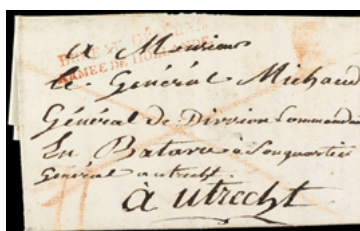 A Monsieur
ARMÉE DE HOLLANDE
Le Général Michaud
Général de Division Commandan
En Batavie à Son quartier
Général a utrecht.
à utrecht